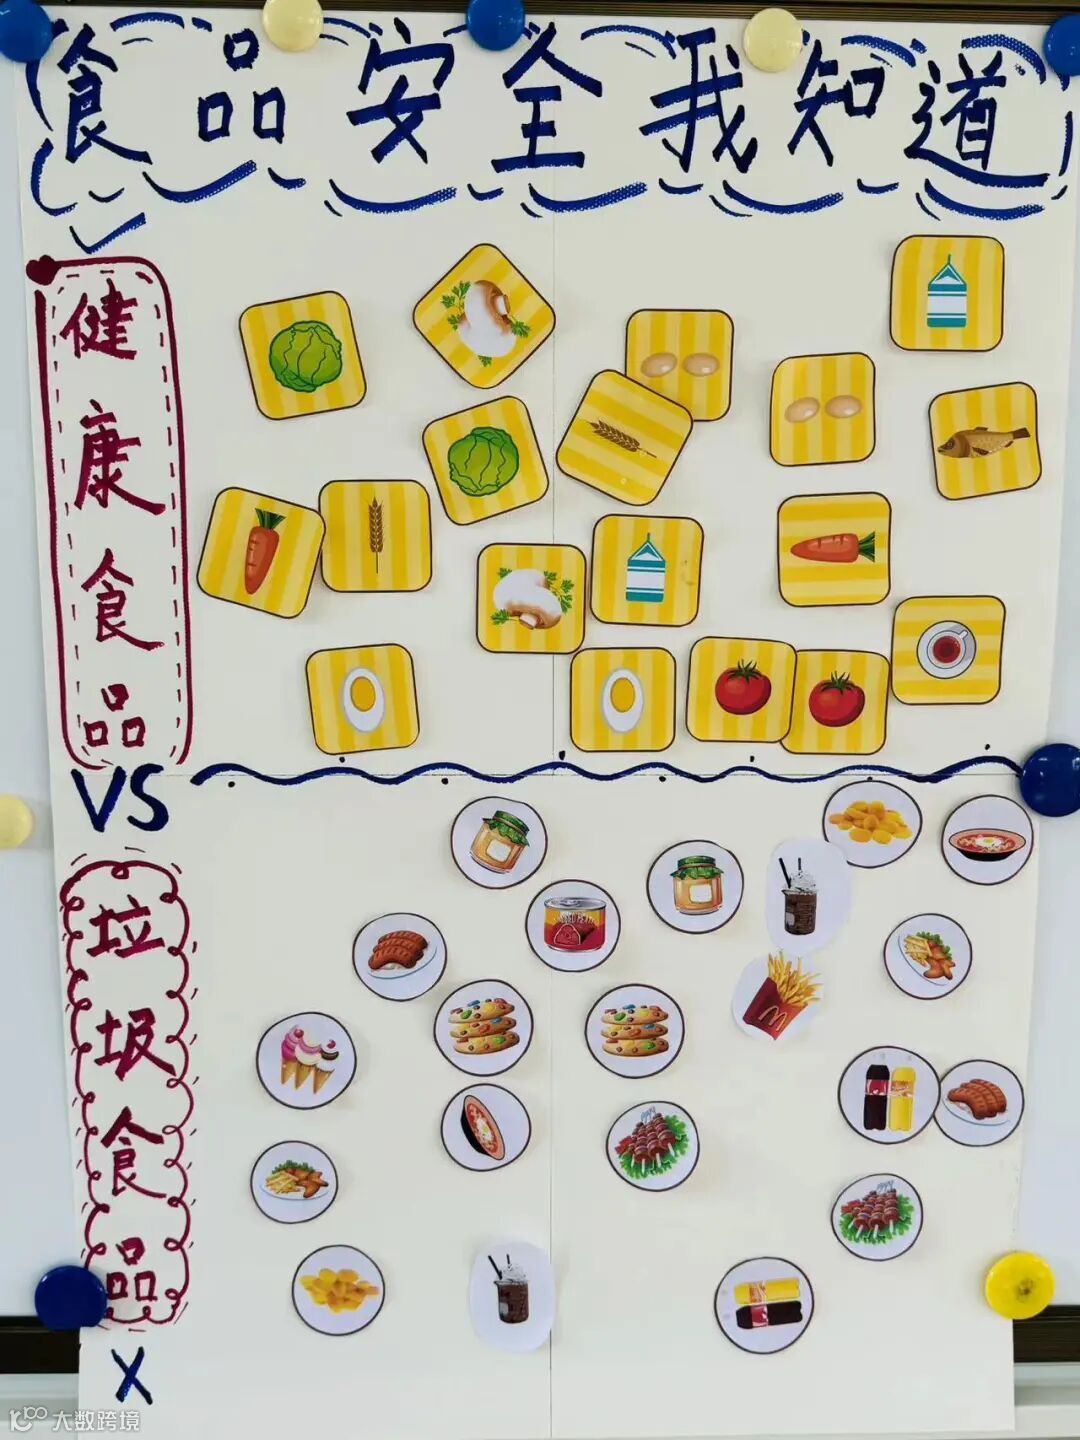 食品安全我知道
健康食品
VS
垃圾食品
X
大数跨境